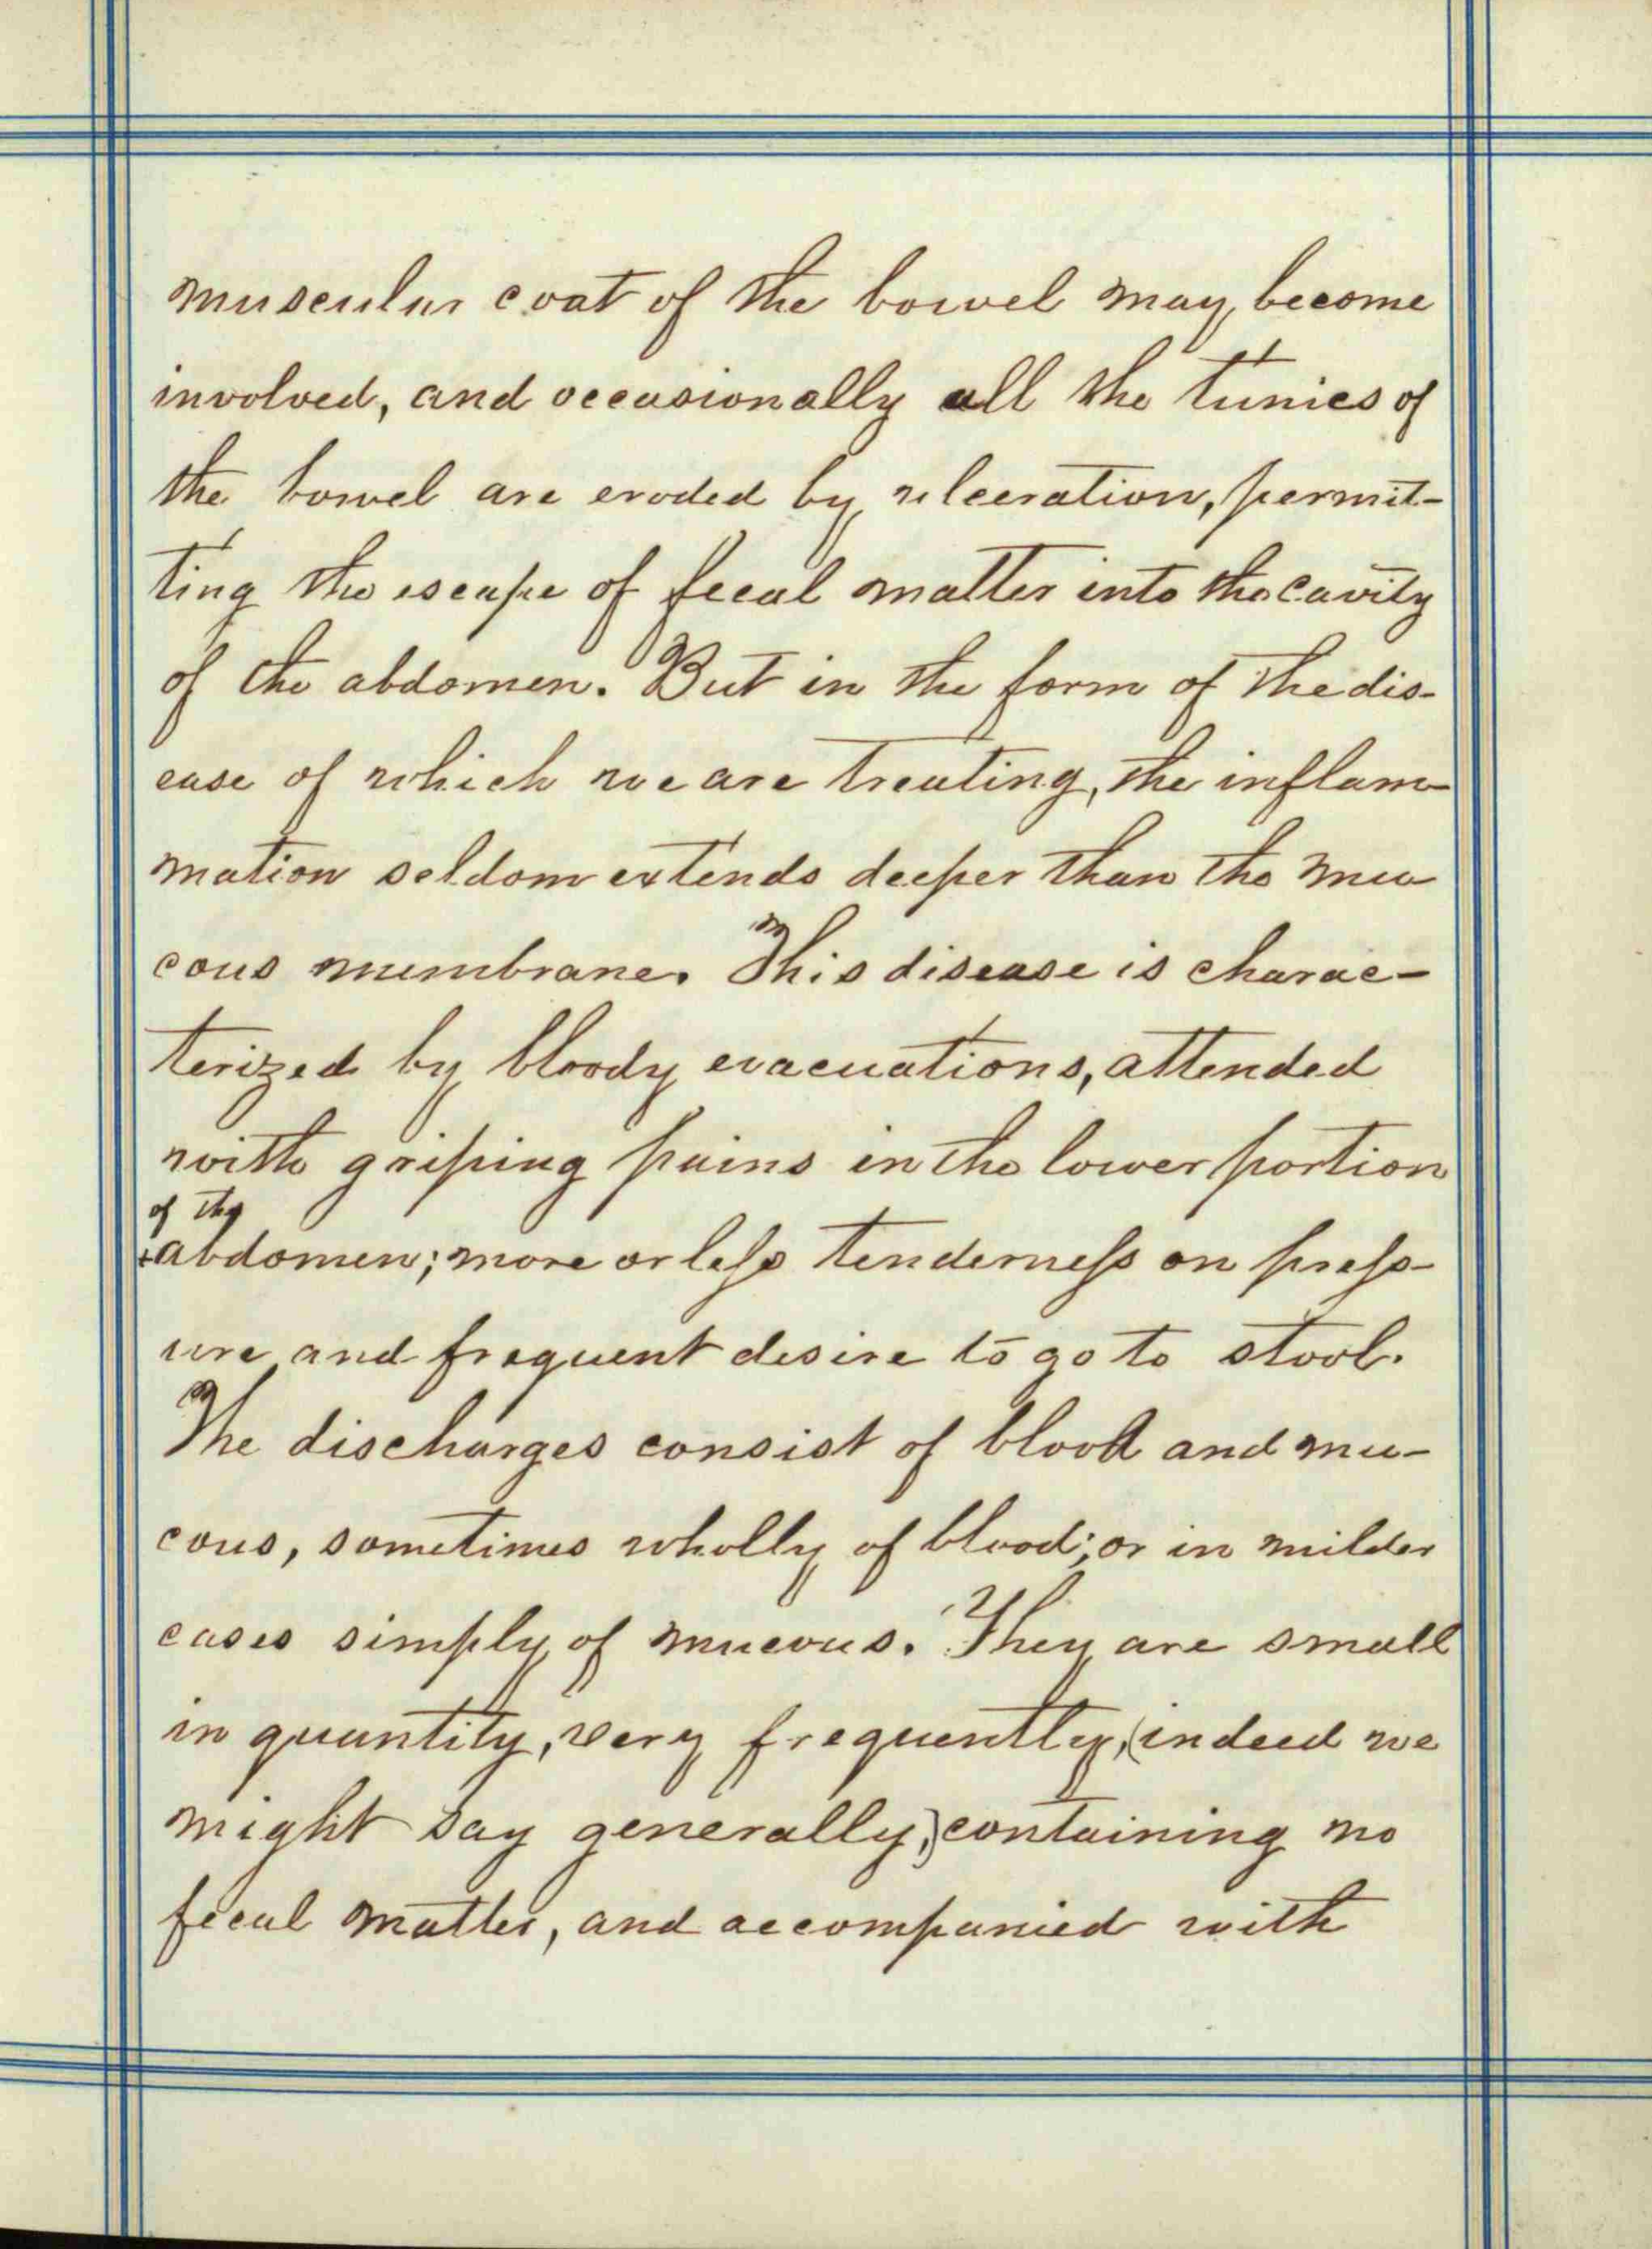 muscular coat of the bowel may become
involved, and occasionally all the tunics of
the bowel are eroded by ulceration, permit-
ting the escape of fecal matter into the cavity
of the abdomen. But in the form of the dis-
ease of which we are treating, the inflam-
mation seldom extends deeper than the mu-
cous membrane. This disease is charac-
terized by bloody evacuations, attended
with griping pains in the lower portion
of the
+abdomen; more or less tenderness on press-
ure and frequent desire to go to stool.
The discharges consist of blood and mu-
cous, sometimes wholly of blood; or in milder
cases simply of mucous. They are small
in quantity, very frequently, (indeed we
might say generally,) containing no
fecal matter, and accompanied with